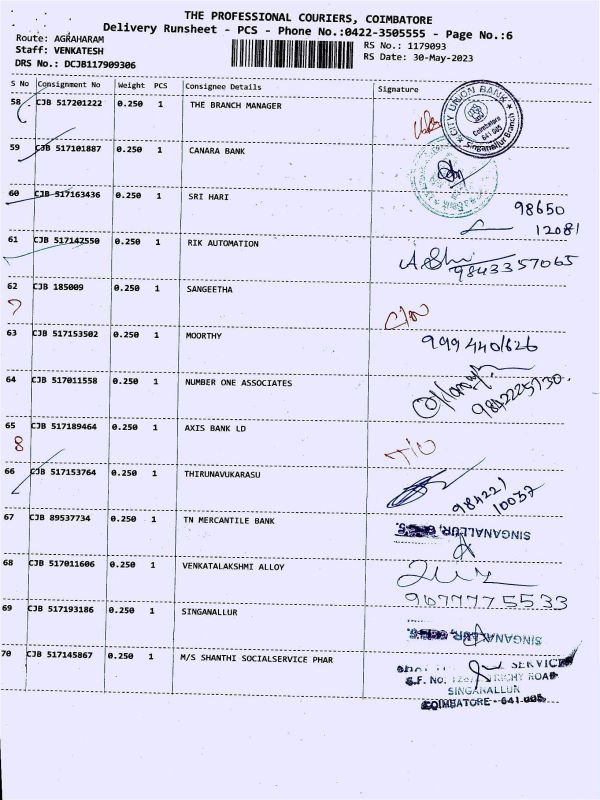 THE PROFESSIONAL COURIERS, COIMBATORE
Delivery Runsheet - PCS - Phone No.:0422-3505555 - Page No.:6
Route: AGRAHARAM
RS No.: 1179093
Staff: VENKATESH
RS Date: 30-May-2023
DRS No.: DCJB117909306
S No Consignment No Weight PCS Consignee Details Signature
58 CJB 517201222 0.250 1 THE BRANCH MANAGER
CITY UNION BANK
Coimbatore
641 005
Singanallur Branch
59 CJB 517101887 0.250 1 CANARA BANK
60 CJB 517163436 0.250 1 SRI HARI
98650
12081
61 CJB 517142550 0.250 1 RIK AUTOMATION
9843357065
62 CJB 185009 0.250 1 SANGEETHA
7
63 CJB 517153502 0.250 1 MOORTHY
64 CJB 517011558 0.250 1 NUMBER ONE ASSOCIATES
9842225730
65 CJB 517189464 0.250 1 AXIS BANK LD
8
66 CJB 517153764 0.250 1 THIRUNAVUKARASU
984221
10037
67 CJB 89537734 0.250 1 TN MERCANTILE BANK
SINGANALLUR,
68 CJB 517011606 0.250 1 VENKATALAKSHMI ALLOY
69 CJB 517193186 0.250 1 SINGANALLUR
SINGANALLUR,
70 CJB 517145867 0.250 1 M/S SHANTHI SOCIALSERVICE PHAR
SERVICE
S.F. NO. TRICHY ROAD
SINGANALLUR
COIMBATORE - 641 005.